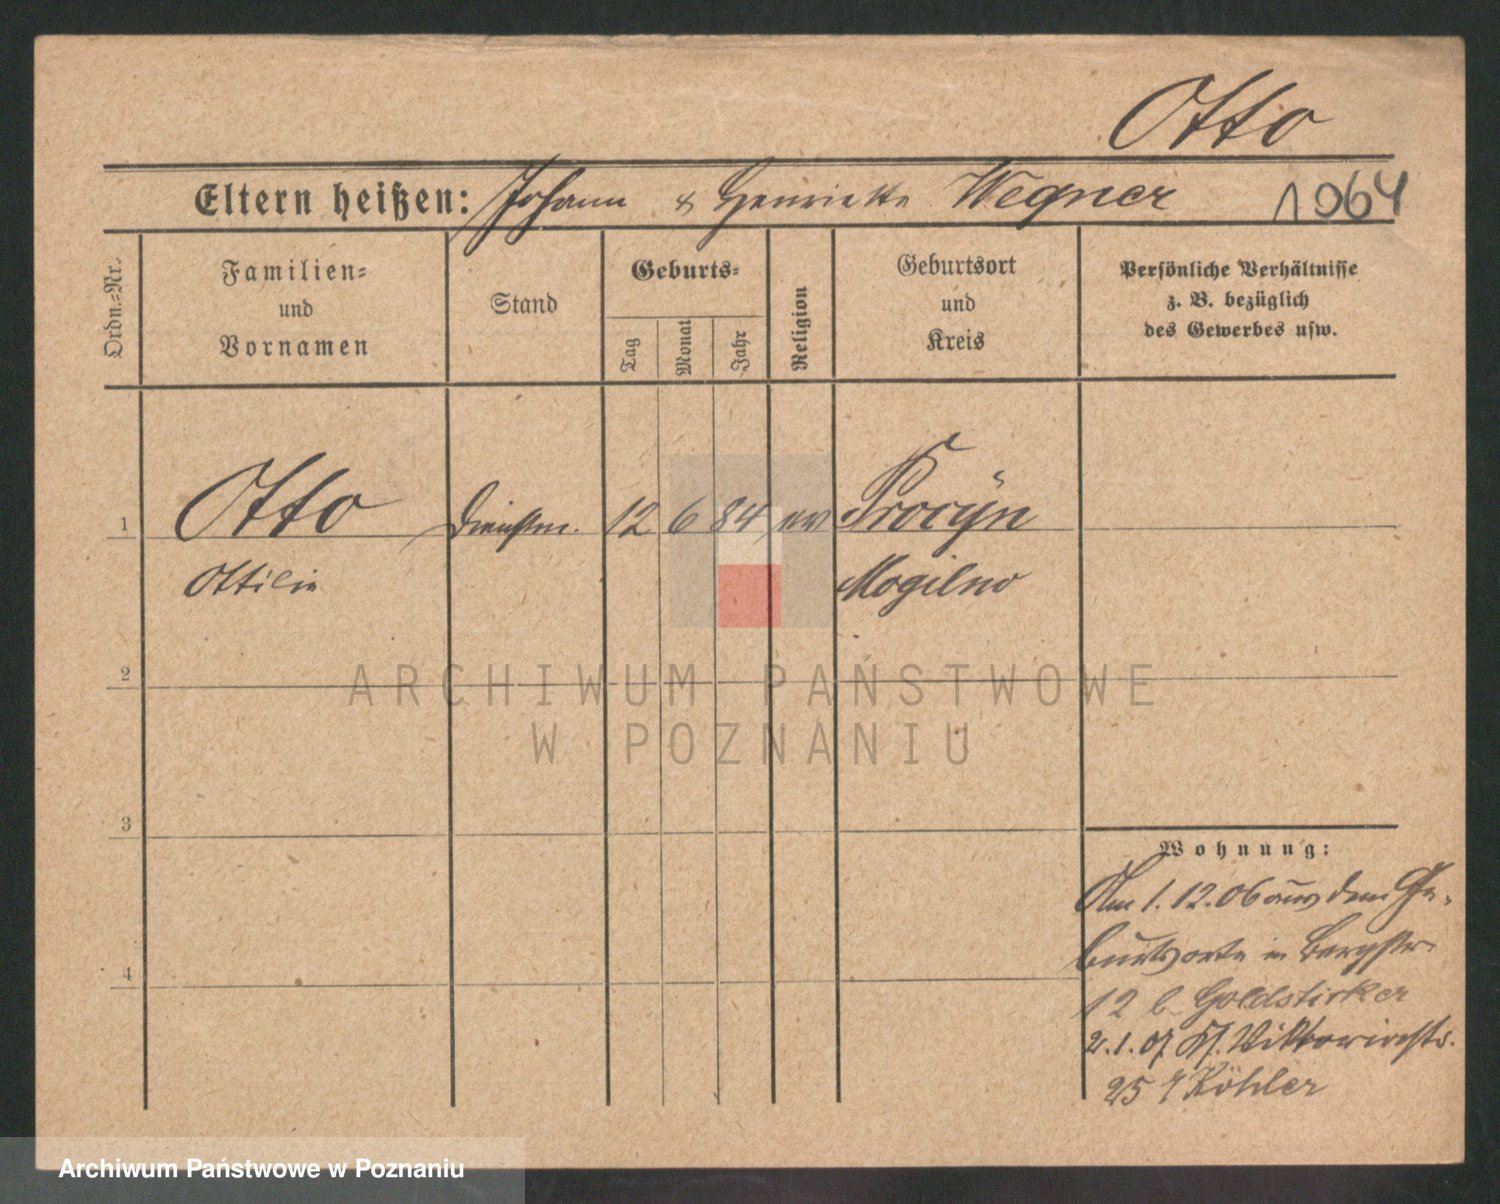 Otto
Eltern heißen: Johann & Henriette Wegner 1064
Ordn.-Nr.
Familien- und Vornamen
Stand
Geburts-
Tag
Monat
Jahr
Religion
Geburtsort und Kreis
Persönliche Verhältnisse
z. B. bezüglich
des Gewerbes usw.
1 Otto Dienstm. 12 6 84 ev Procyn
Ottilie Mogilno
2
ARCHIWUM PAŃSTWOWE
W POZNANIU
3
Wohnung:
Am 1.12.06 aus dem Ge-
burtsorte in Bergstr.
4
12 b. Goldsticker
2.1.07 Kl. Viktoriastr.
25 Köhler
Archiwum Państwowe w Poznaniu